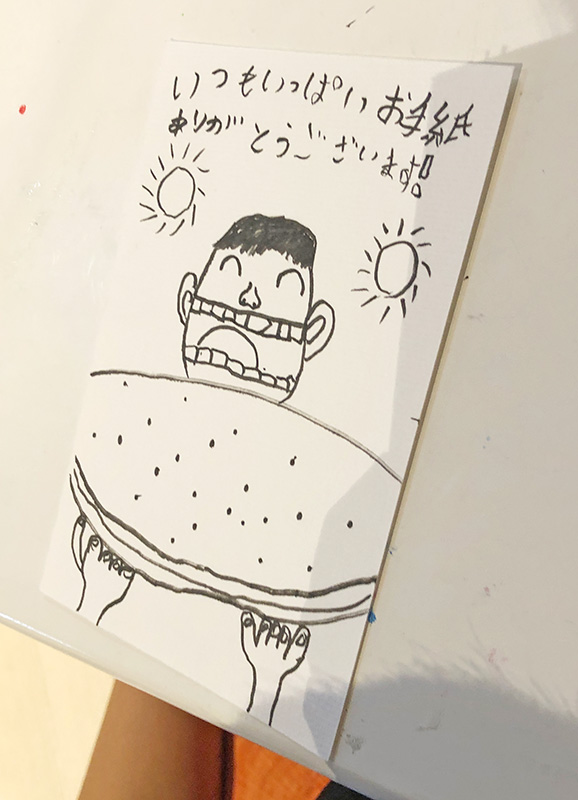 いつもいっぱいお手紙
ありがとうございます!!